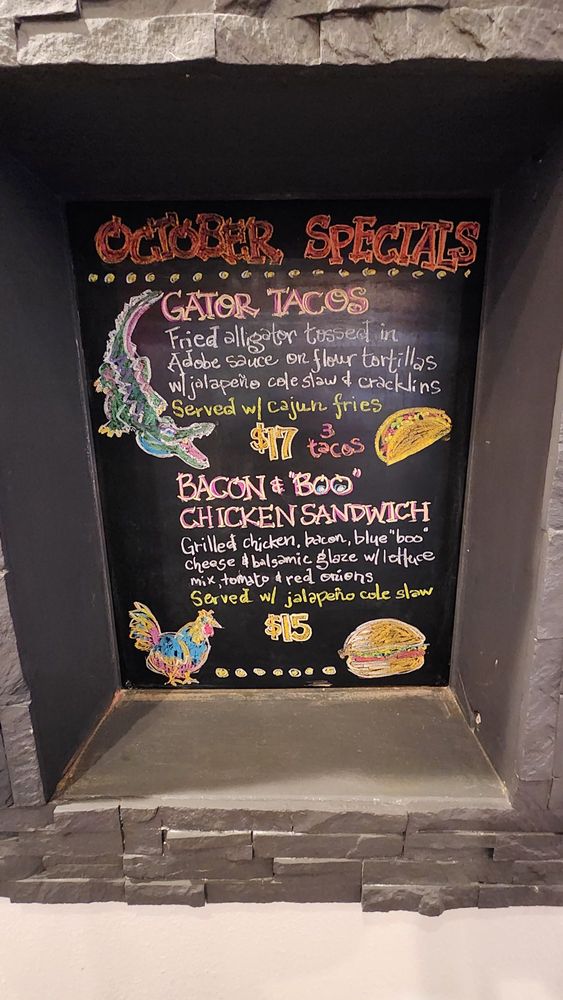 OCTOBER SPECIALS
GATOR TACOS
Fried alligator tossed in
Adobe sauce on flour tortillas
w/ jalapeño cole slaw & cracklins
Served w/ cajun fries
$17 3 tacos
BACON & "BOO"
CHICKEN SANDWICH
Grilled chicken, bacon, blue "boo"
cheese & balsamic glaze w/ lettuce
mix, tomato & red onions
Served w/ jalapeño cole slaw
$15